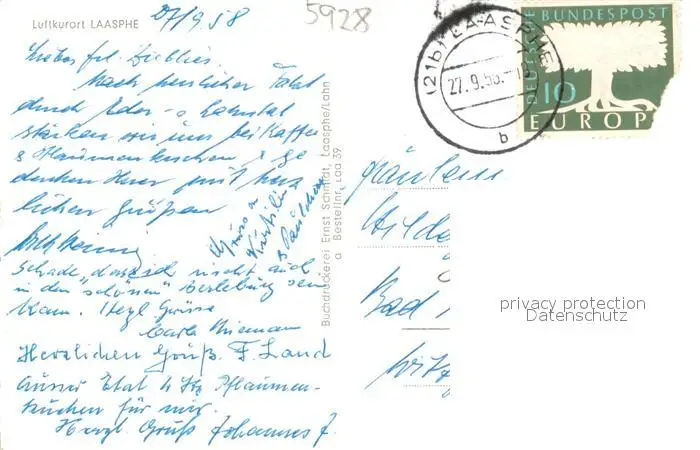 Luftkurort LAASPHE
27/9.58
5928
Liebes Frl.
Nach herrlicher Fahrt
durch Eder- u Lahntal
stärken wir uns bei Kaffee
& Pflaumenkuchen & ge
denken Ihrer mit herz
lichen Grüßen
Schade, dass ich nicht auch
in den "schönen" Berleburg sein
kann. Herzl Grüsse
Carla Niemann
Herzlichen Gruß. F. Land
Ausser Etat 4 Stg Pflaumen-
kuchen für mir.
Herzl. Gruß Johannes F.
Gruss
Buchdruckerei Ernst Schmidt, Laasphe/Lahn
a Bestellnr. Laa 39
(21b) LAASPHE
27.9.58.
b
DEUTSCHE BUNDESPOST
10
EUROP
Fräulein
Hilde
Bad
Witz
privacy protection
Datenschutz